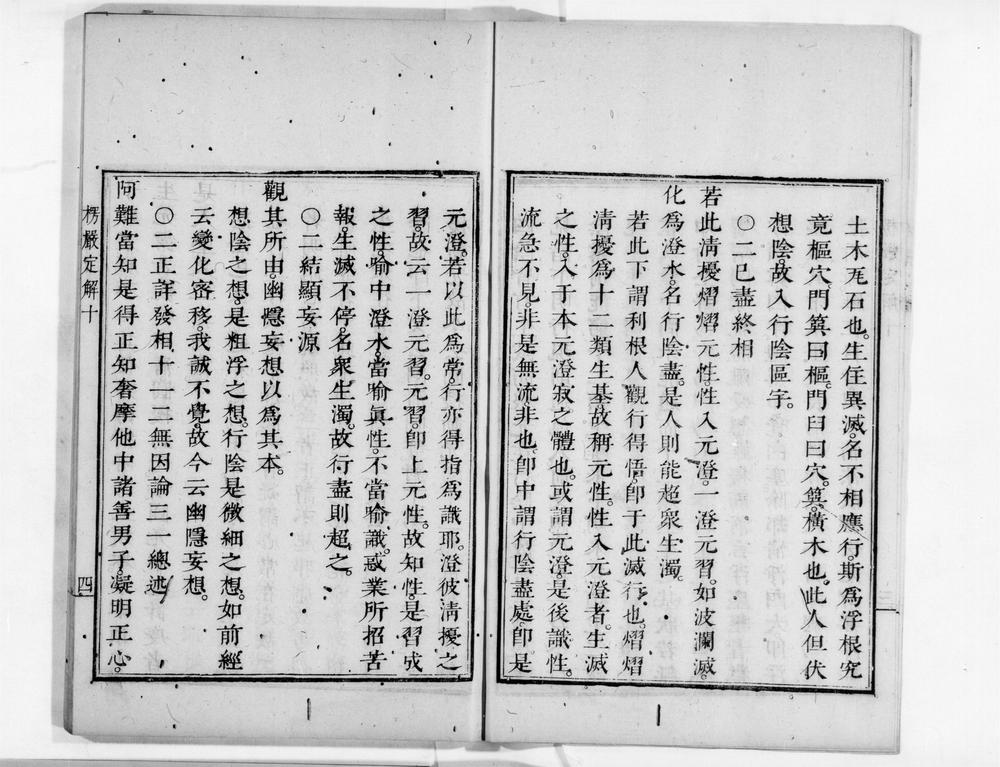 土木瓦石也。生住異滅。名不相應行。斯爲浮根究
竟樞穴門箕曰樞。門臼曰穴。箕。橫木也。此人但伏
想陰。故入行陰區宇。
○二已盡終相
若此清擾熠熠元性。性入元澄。一澄元習。如波瀾滅。
化爲澄水。名行陰盡。是人則能超衆生濁。
若此下謂利根人觀行得悟。卽于此滅行也。熠熠
清擾爲十二類生基。故稱元性。性入元澄者。生滅
之性。入于本元澄寂之體也。或謂元澄。是後識性。
流急不見。非是無流。非也。卽中謂行陰盡處。卽是
元澄。若以此爲常。行亦得指爲識耶。澄彼清擾之
習。故云一澄元習。元習。卽上元性。故知性。是習成
之性。喻中澄水。當喻眞性。不當喻識。惑業所招苦
報。生滅不停。名衆生濁。故行盡則超之。
○二結顯妄源
觀其所由。幽隱妄想以爲其本。
想陰之想。是粗浮之想。行陰是微細之想。如前經
云變化密移。我誠不覺。故今云幽隱妄想。
○二正詳發相十一二無因論三一總述
阿難當知是得正知奢摩他中諸善男子。凝明正心。
楞嚴定解十
四
三